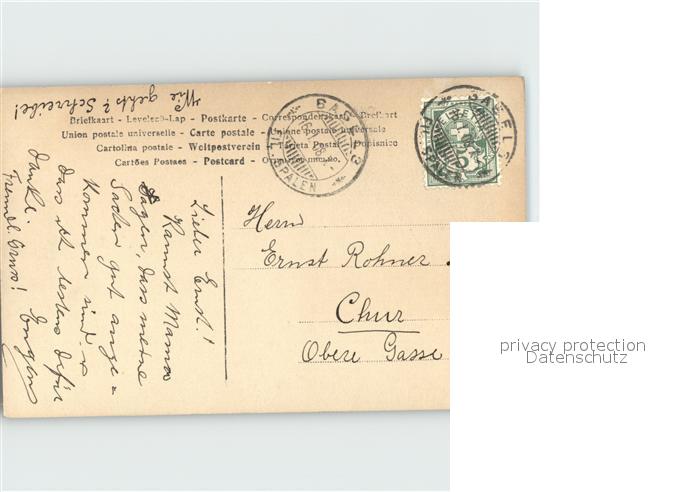 Wie gehts? Schreibe!
Briefkaart - Levelezö-Lap - Postkarte - Correspondenzkarte - Brefkort
Union postale universelle - Carte postale - Unione postale universale
Cartolina postale - Weltpostverein - Tarjeta Postal - Dopisnice
Cartões Postaes - Postcard -
BASEL 3
SPALEN
BASEL 3
SPALEN
5
Lieber Ernst!
Kannst Mama
sagen, dass meine
Sachen gut ange-
kommen sind u
dass ich bestens dafür
danke.
Freundl. Gruss!
Eugen
Herrn
Ernst Rohner
Chur
Obere Gasse
privacy protection
Datenschutz